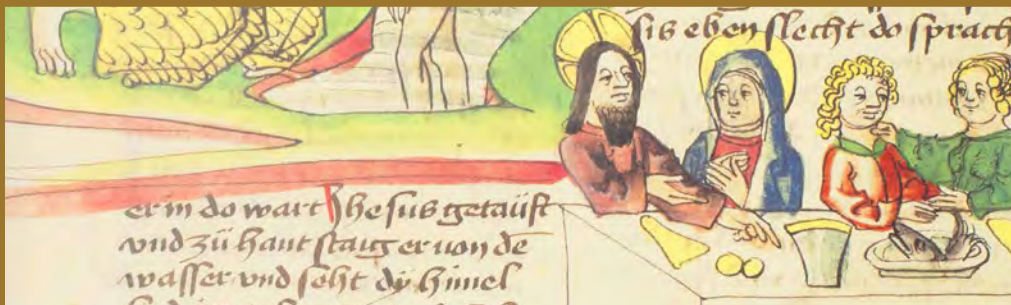 sis eben slecht do sprach
er in do wart Jhesus getaüft
vnd zü hant staig er von dē
wasser vnd seht dy himel